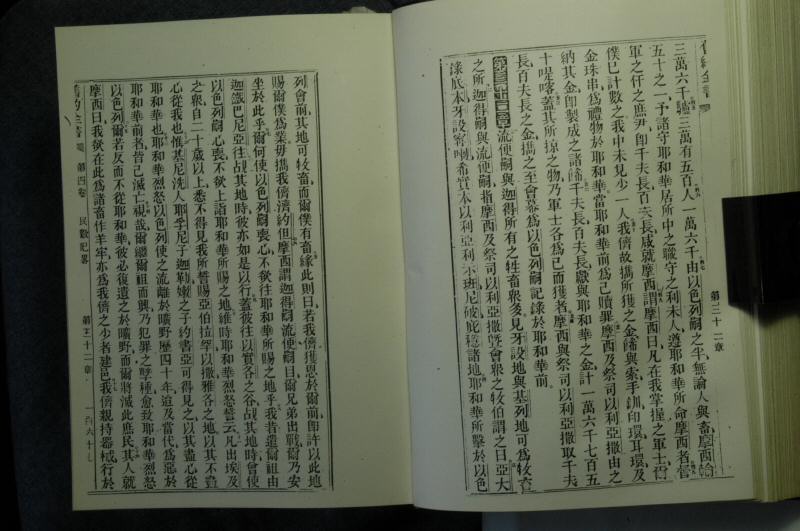 三萬六千驢三萬有五百人一萬六千由以色列嗣之半無論人與畜摩西
五十之一予諸守耶和華居所中之職守之利未人遵耶和華所命摩西者督
軍之仟之庶尹卽千夫長百夫長咸就摩西謂摩西曰凡在我掌握之軍士爾
僕已計數之我中未見少一人我儕故攜所獲之金飾與索手釧印環耳環及
金珠串爲禮物於耶和華當耶和華前爲己贖罪摩西及祭司以利亞撒取由之
納其金卽製成之諸飾千夫長百夫長獻與耶和華之金計一萬六千七百五
十是咯蓋其所掠之物乃軍士各爲己而獲者摩西與祭司以利亞撒取千夫
長百夫長之金攜之至會幕爲以色列嗣記錄於耶和華前
流便嗣與迦得所有之牲畜衆多見牙設地與基列地可爲牧畜
之所迦得嗣與流便嗣指摩西及祭司以利亞撒曁會衆之牧伯謂之曰亞大
錄底本牙設寧喇希實本以利亞利示班尼破庇穩諸地耶和華所擊於以色
第三十一章
列會前其地可牧畜而爾僕有畜緣此則曰若我儕獲恩於爾前卽許以此地
賜爾僕爲業毋攜我儕濟約但摩西謂迦得嗣流便嗣曰爾兄弟出戰爾乃安
坐於此乎爾何使以色列嗣喪心不欲往耶和華所賜之地乎我昔遣爾祖由
迦鐵巴尼亞往戡其地時彼亦如是以行蓋彼往以實各之谷戡其地時會使
以色列嗣心喪不欲上詣耶和華所賜之地維時耶和華烈怒誓云凡出埃及
之衆自二十歲以上悉不得見我所誓賜亞伯拉罕以撒雅各之地以其不壹
心從我也惟基尼洗人耶孚尼子迦勒嫩之子約書亞可得見之以其盡心從
耶和華也耶和華烈怒以色列使之流離於曠野歷四十年迨及當代爲惡於
耶和華前者皆已滅亡視哉爾繼爾祖而興乃犯罪之孽種愈致耶和華烈怒
以色列爾若反而不從耶和華彼必復遺之於曠野而爾將滅此庶民其人就
摩西曰我欲在此爲諸畜作羊牢亦爲我儕之少者建邑我儕親持器械行於
舊約全書 第四卷 民數記畧 第三十二章